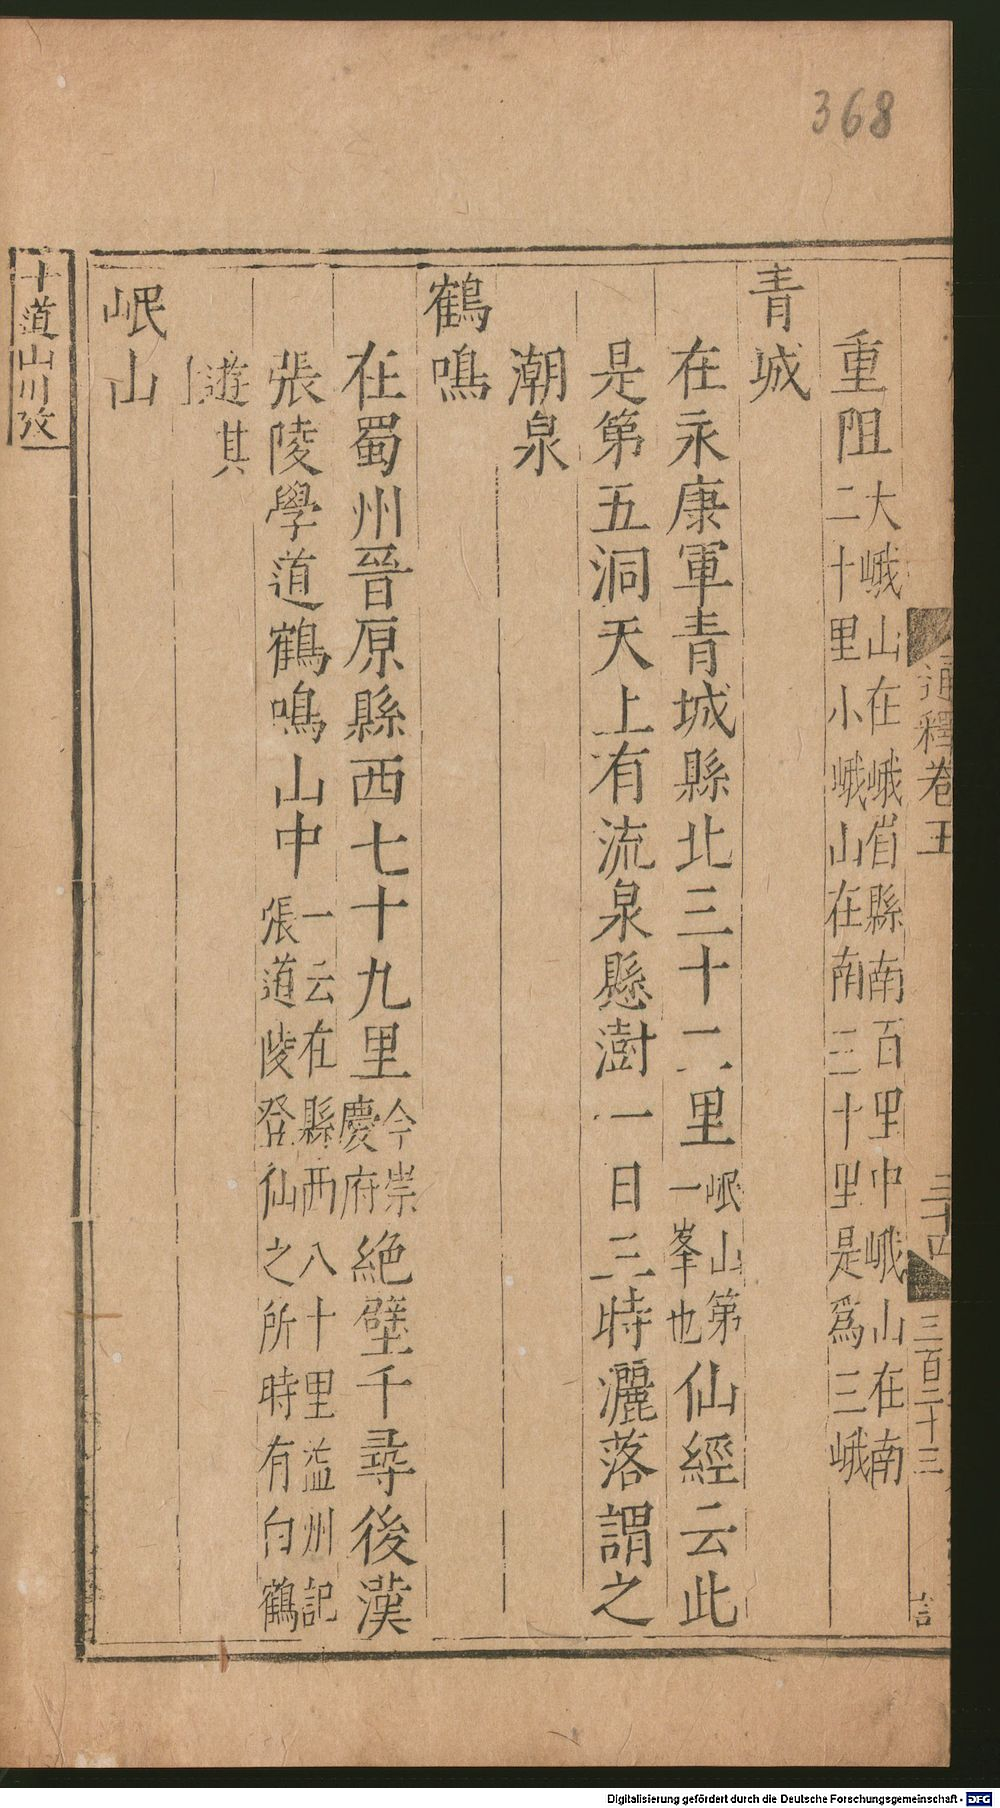 368
通釋卷五
三十四
三百二十三
重阻大峨山在峨眉縣南百里中峨山在南
二十里小峨山在南三十里是爲三峨
青城
在永康軍青城縣北三十二里岷山第
一峯也仙經云此
是第五洞天上有流泉懸澍一日三時灑落謂之
潮泉
鶴鳴
在蜀州晉原縣西七十九里今崇
慶府絶壁千尋後漢
張陵學道鶴鳴山中一云在縣西八十里益州記
張道陵登仙之所時有白鶴
遊其
上
岷山
十道山川攷
Digitalisierung gefördert durch die Deutsche Forschungsgemeinschaft - DFG